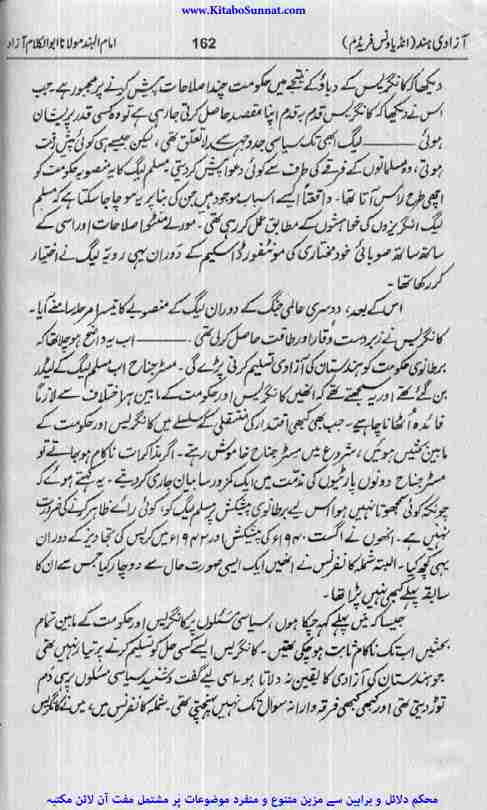 www.KitaboSunnat.com
آزادیٔ ہند (انڈیا ونس فریڈم)
162
امام الہند مولانا ابوالکلام آزاد
دیکھا کہ کانگریس کے دباؤ کے نتیجے میں حکومت چند اصلاحات پیش کرنے پر مجبور ہے۔ جب
اس نے دیکھا کہ کانگریس قدم بہ قدم اپنا مقصد حاصل کرتی جا رہی ہے تو وہ کسی قدر پریشان
ہوئی ——— لیگ ابھی تک سیاسی جدوجہد سے لاتعلق تھی، لیکن جیسے ہی کوئی پیش رفت
ہوتی، وہ مسلمانوں کے فرقے کی طرف سے کوئی دعوا پیش کر دیتی۔ مسلم لیگ کا یہ منصوبہ حکومت کو
اچھی طرح راس آتا تھا۔ واقعتاً ایسے اسباب موجود ہیں جن کی بنا پر یہ سوچا جا سکتا ہے کہ مسلم
لیگ انگریزوں کی خواہشوں کے مطابق عمل کر رہی تھی۔ مورلے منٹو اصلاحات اور اسی کے
ساتھ ساتھ صوبائی خود مختاری کی مونٹفورڈ اسکیم کے دوران یہی رویہ لیگ نے اختیار
کر رکھا تھا۔
اس کے بعد، دوسری عالمی جنگ کے دوران لیگ کے منصوبے کا تیسرا مرحلہ سامنے آیا۔
کانگریس نے زبردست وقار اور طاقت حاصل کر لی تھی ——— اب یہ واضح ہو چلا تھا کہ
برطانوی حکومت کو ہندستان کی آزادی تسلیم کرنی پڑے گی۔ مسٹر جناح اب مسلم لیگ کے لیڈر
بن گئے تھے اور یہ سمجھتے تھے کہ انھیں کانگریس اور حکومت کے مابین ہر اختلاف سے لازماً
فائدہ اٹھانا چاہیے۔ جب بھی کبھی اقتدار کی منتقلی کے سلسلے میں کانگریس اور حکومت کے
مابین بحثیں ہوئیں، شروع میں مسٹر جناح خاموش رہتے۔ اگر مذاکرات ناکام ہو جاتے تو
مسٹر جناح دونوں پارٹیوں کی مذمت میں ایک کمزور سا بیان جاری کر دیتے۔ یہ کہتے ہوئے کہ
چونکہ کوئی سمجھوتا نہیں ہوا اس لیے برطانوی پیشکش پر مسلم لیگ کو، کوئی رائے ظاہر کرنے کی ضرورت
نہیں ہے۔ انھوں نے اگست ۱۹۴۰ء کی پیشکش اور ۱۹۴۲ء میں کرپس کی تجاویز کے دوران
یہی کچھ کیا۔ البتہ شملہ کانفرنس نے انھیں ایک ایسی صورت حال سے دوچار کیا جس سے ان کا
سابقہ پہلے کبھی نہیں پڑا تھا۔
جیسا کہ میں پہلے کہہ چکا ہوں، سیاسی مسئلوں پر کانگریس اور حکومت کے مابین تمام
بحثیں اب تک ناکام ثابت ہو چکی تھیں۔ کانگریس ایسے کسی حل کو تسلیم کرنے پر تیار نہیں تھی
جو ہندستان کی آزادی کا یقین نہ دلاتا ہو۔ اسی لیے گفت و شنید سیاسی مسئلوں پر ہی دم
توڑ دیتی تھی اور کبھی کبھی فرقہ وارانہ سوال تک نہیں پہنچتی تھی۔ شملہ کانفرنس میں، میں نے کانگریس
محکم دلائل و براہین سے مزین متنوع و منفرد موضوعات پر مشتمل مفت آن لائن مکتبہ